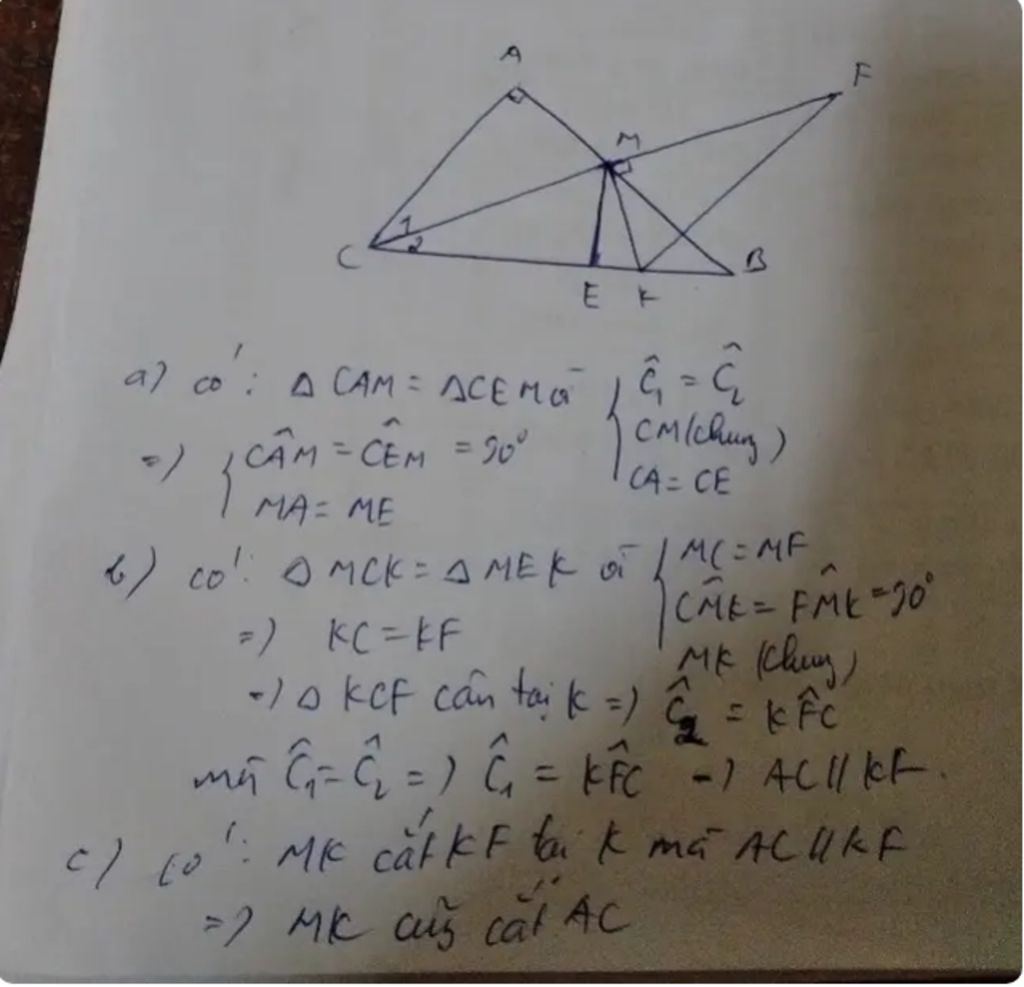 A
F
M
1
2
C
B
E K
a) có: Δ CAM = ΔCEM vì { Ĉ₁ = Ĉ₂
CM (chung)
CA = CE
=> { CÂM = CÊM = 90°
MA = ME
b) có: Δ MCK = Δ MEK vì { MC = MF
CM̂K = FM̂K = 90°
MK (chung)
=> KC = KF
=> Δ KCF cân tại K => Ĉ₂ = KF̂C
mà Ĉ₁ = Ĉ₂ => Ĉ₁ = KF̂C => AC // KF.
c) có: MK cắt KF tại K mà AC // KF
=> MK cũg cắt AC